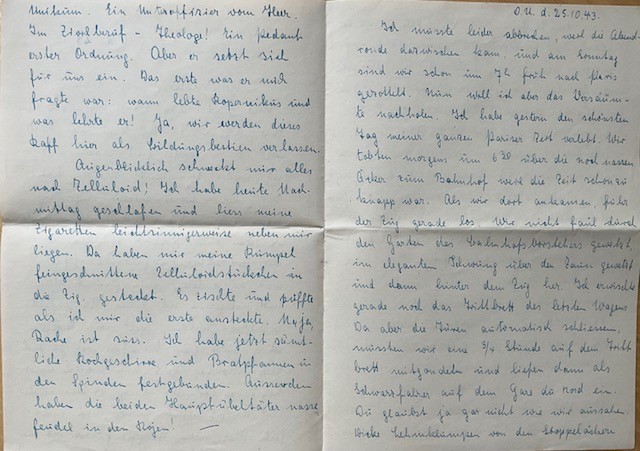 Unikum. Ein Unteroffizier vom Heer.
Im Zivilberuf - Theologe! Ein Pedant
erster Ordnung. Aber er setzt sich
für uns ein. Das erste was er mich
fragte war: wann lebte Kopernikus und
was lehrte er! Ja, wir werden dieses
Kaff hier als Bildungsbestien verlassen.
Augenblicklich schmeckt mir alles
nach Zelluloid! Ich habe heute Nach-
mittag geschlafen und liess meine
Zigaretten leichtsinnigerweise neben mir
liegen. Da haben mir meine Kumpel
feingeschnittene Zelluloidstückchen in
die Zig. gesteckt. Es zischte und puffte
als ich mir die erste ansteckte. Naja,
Rache ist süss. Ich habe jetzt sämt-
liche Kochgeschirre und Bratpfannen in
den Spinden festgebunden. Ausserdem
haben die beiden Hauptübeltäter nasse
feudel in den Kojen! —
O.U. d. 25.10.43.
Ich musste leider abbrechen, weil die Abend-
ronde dazwischen kam, und am Sonntag
sind wir schon um 7h früh nach Paris
gerollt. Nun will ich aber das Versäum-
te nachholen. Ich habe gestern den schönsten
Tag meiner ganzen Pariser Zeit verlebt. Wir
tobten morgens um 6 30 über die noch nassen
Äcker zum Bahnhof weil die Zeit schon zu
knapp war. Als wir dort ankamen, fuhr
der Zug gerade los. Wir nicht faul durch
den Garten des Bahnhofsvorstehers gewetzt
im eleganten Schwung über den Zaun
und dann hinter dem Zug her. Ich erwischte
gerade noch das Trittbrett des letzten Wagens
Da aber die Türen automatisch schliessen,
mussten wir eine 3/4 Stunde auf dem Tritt
brett mitgondeln und liefen dann als
Schwarzfahrer auf dem Gare du Nord ein.
Du glaubst ja gar nicht wie wir aussahen.
Dicke Lehmklumpen von den Stoppeläckern